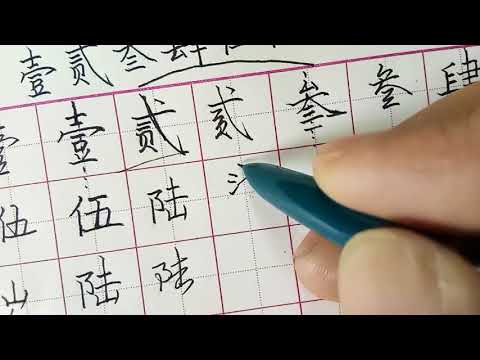 壹贰叁肆
壹壹贰贰叁叁肆
伍伍陆
陆陆